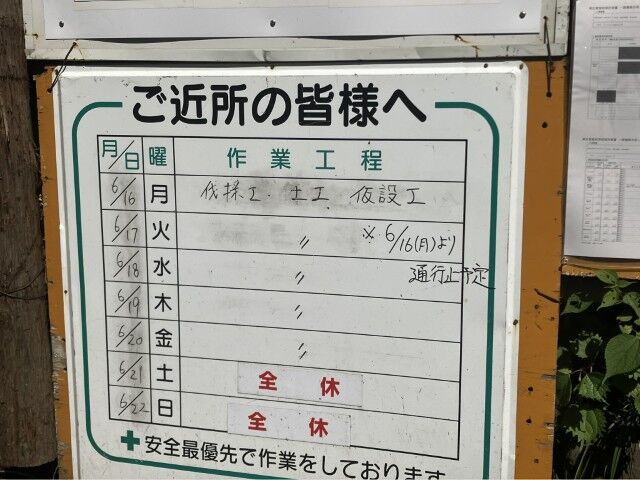 ご近所の皆様へ
月/日 曜 作業工程
6/16 月 伐採工・土工 仮設工
6/17 火 〃 ※6/16(月)より
6/18 水 〃 通行止予定
6/19 木 〃
6/20 金 〃
6/21 土 全休
6/22 日 全休
安全最優先で作業をしております